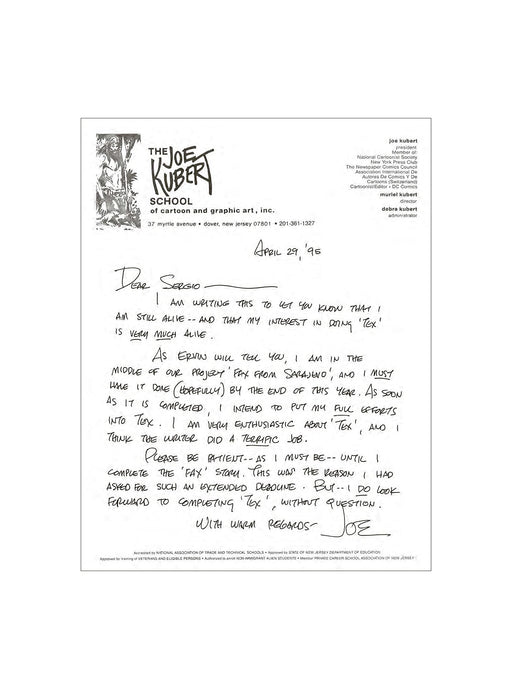 THE JOE
KUBERT
SCHOOL
of cartoon and graphic art, inc.
37 myrtle avenue • dover, new jersey 07801 • 201-361-1327
joe kubert
president
Member of:
National Cartoonist Society
New York Press Club
The Newspaper Comics Council
Association International De
Autores De Comics Y De
Cartoons (Switzerland)
Cartoonist/Editor - DC Comics
muriel kubert
director
debra kubert
administrator
APRIL 29, '95
DEAR SERGIO
I AM WRITING THIS TO LET YOU KNOW THAT I
AM STILL ALIVE -- AND THAT MY INTEREST IN DOING 'TEX'
IS VERY MUCH ALIVE.
AS ERVIN WILL TELL YOU, I AM IN THE
MIDDLE OF OUR PROJECT 'FAX FROM SARAJEVO', AND I MUST
HAVE IT DONE (HOPEFULLY) BY THE END OF THIS YEAR. AS SOON
AS IT IS COMPLETED, I INTEND TO PUT MY FULL EFFORTS
INTO TEX. I AM VERY ENTHUSIASTIC ABOUT 'TEX', AND I
THINK THE WRITER DID A TERRIFIC JOB.
PLEASE BE PATIENT -- AS I MUST BE -- UNTIL I
COMPLETE THE 'FAX' STORY. THIS WAS THE REASON I HAD
ASKED FOR SUCH AN EXTENDED DEADLINE. BUT -- I DO LOOK
FORWARD TO COMPLETING 'TEX', WITHOUT QUESTION.
WITH WARM REGARDS-
JOE
Accredited by NATIONAL ASSOCIATION OF TRADE AND TECHNICAL SCHOOLS • Approved by STATE OF NEW JERSEY DEPARTMENT OF EDUCATION
Approved for training of VETERANS AND ELIGIBLE PERSONS • Authorized to enroll NON-IMMIGRANT ALIEN STUDENTS • Member PRIVATE CAREER SCHOOL ASSOCIATION OF NEW JERSEY